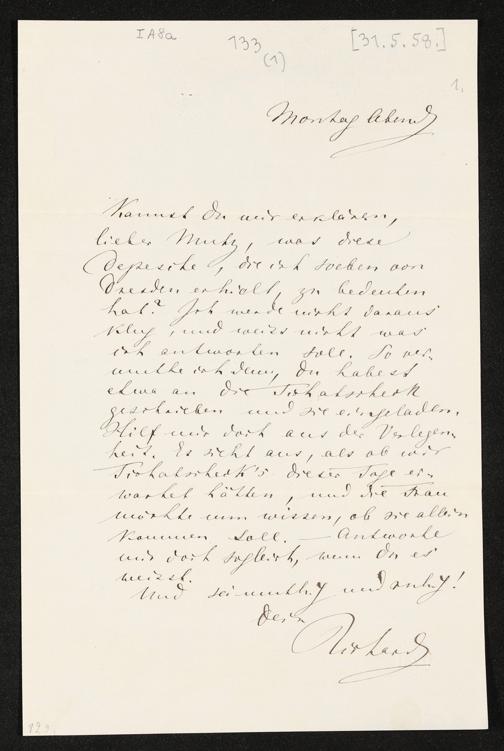 IA8a
133
(1)
[31.5.58.]
1.
Montag Abend
Kannst Du mir erklären,
lieber Mutz, was diese
Depesche, die ich soeben von
Dresden erhielt, zu bedeuten
hat? Ich werde nicht daraus
klug, und weiss nicht was
ich antworten soll. So ver-
muthe ich denn, Du habest
etwa an die Tichatscheck
geschrieben und sie eingeladen.
Hilf mir doch aus der Verlegen-
heit. Es sieht aus, als ob wir
Tichatscheck's dieser Tage er-
wartet hätten, und die Frau
möchte nun wissen, ob sie allein
kommen soll. — Antworte
mir doch sogleich, wenn Du es
weisst.
Und sei muthig und ruhig!
Dein
Richard